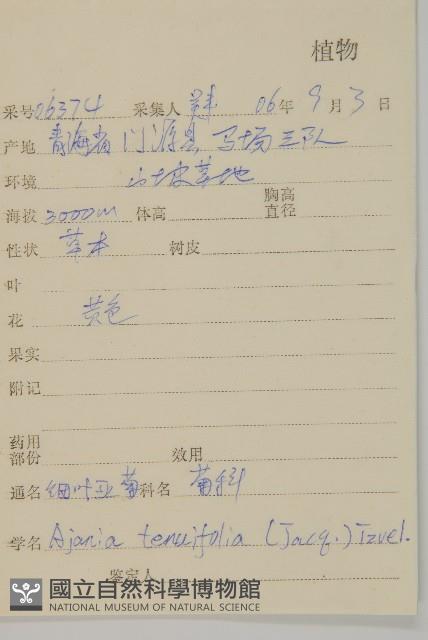 植物
采号 06374 采集人 06年 9月 3日
产地 青海省门源县马场三队
环境 山坡草地
海拔 3000m 体高 胸高直径
性状 草本 树皮
叶
花 黄色
果实
附记
药用部份 效用
通名 细叶亚菊 科名 菊科
学名 Ajania tenuifolia (Jacq.) Tzvel.
鉴定人
國立自然科學博物館
NATIONAL MUSEUM OF NATURAL SCIENCE